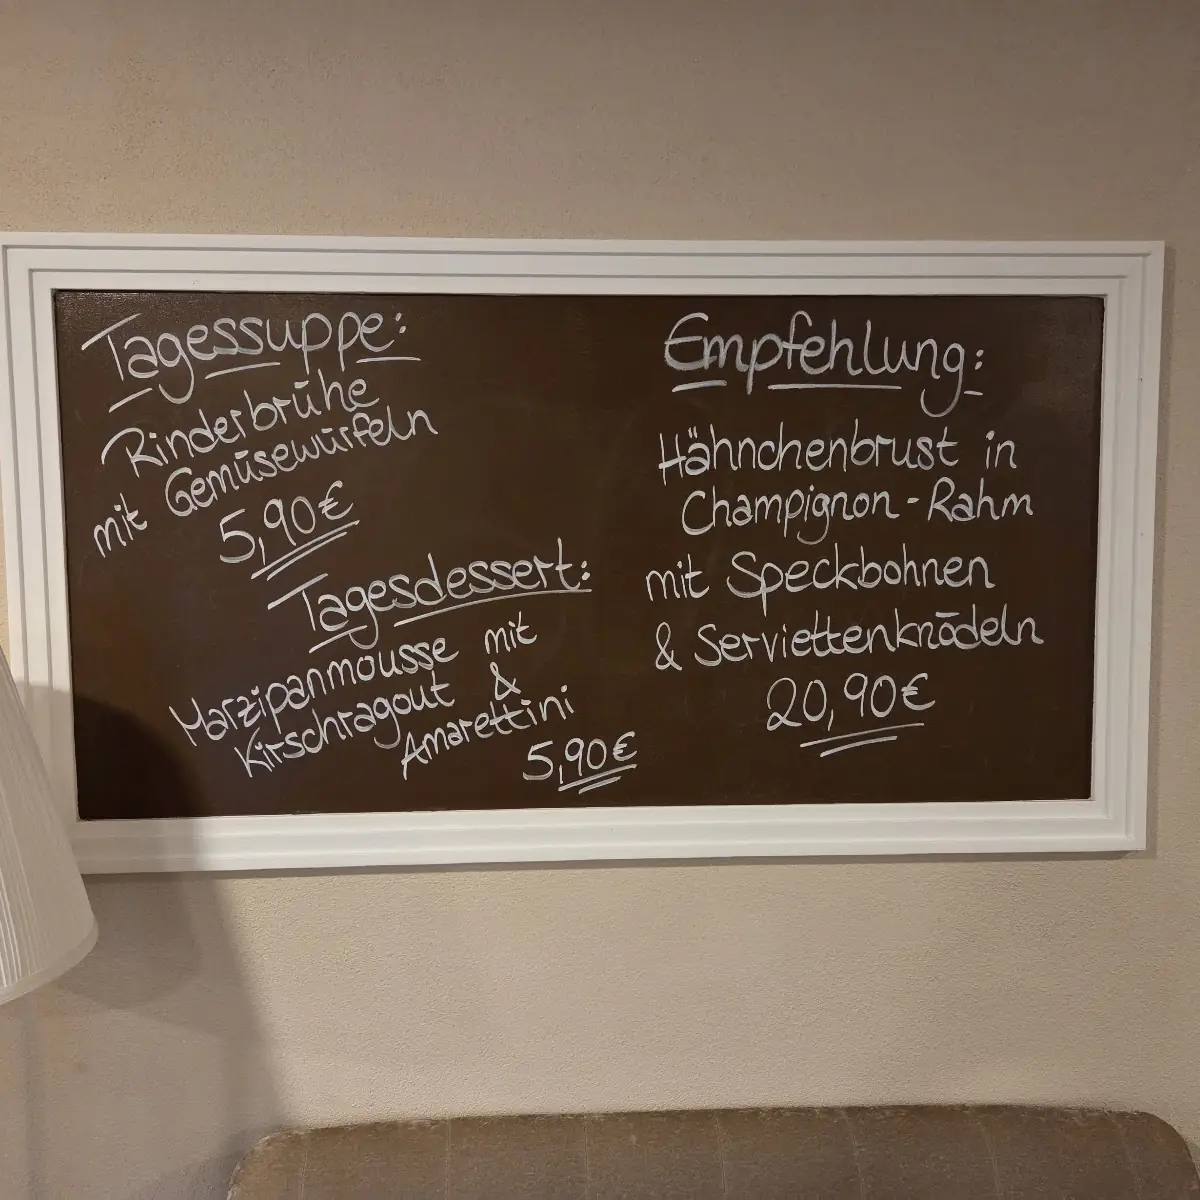 Tagessuppe:
Rinderbrühe
mit Gemüsewürfeln
5,90€
Tagesdessert:
Marzipanmousse mit
Kirschragout &
Amarettini
5,90€
Empfehlung:
Hähnchenbrust in
Champignon-Rahm
mit Speckbohnen
& Serviettenknödeln
20,90€